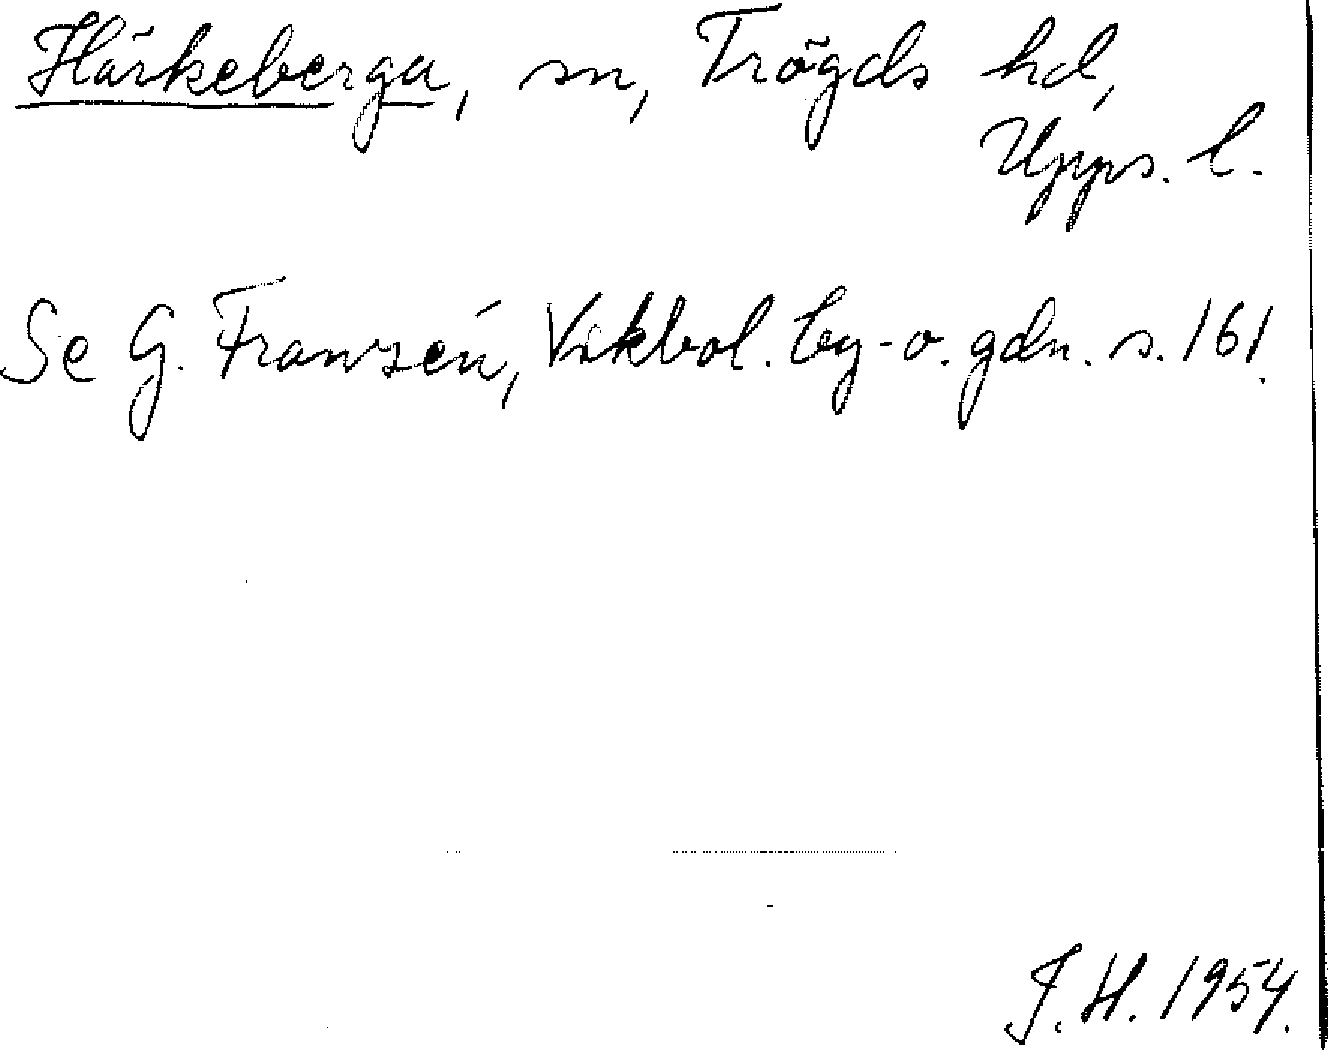 Härkeberga, sn, Trögds hd,
Upps. l.
Se G. Franzén, Vikbol. by- o. gdn. s. 161.
J. H. 1954.